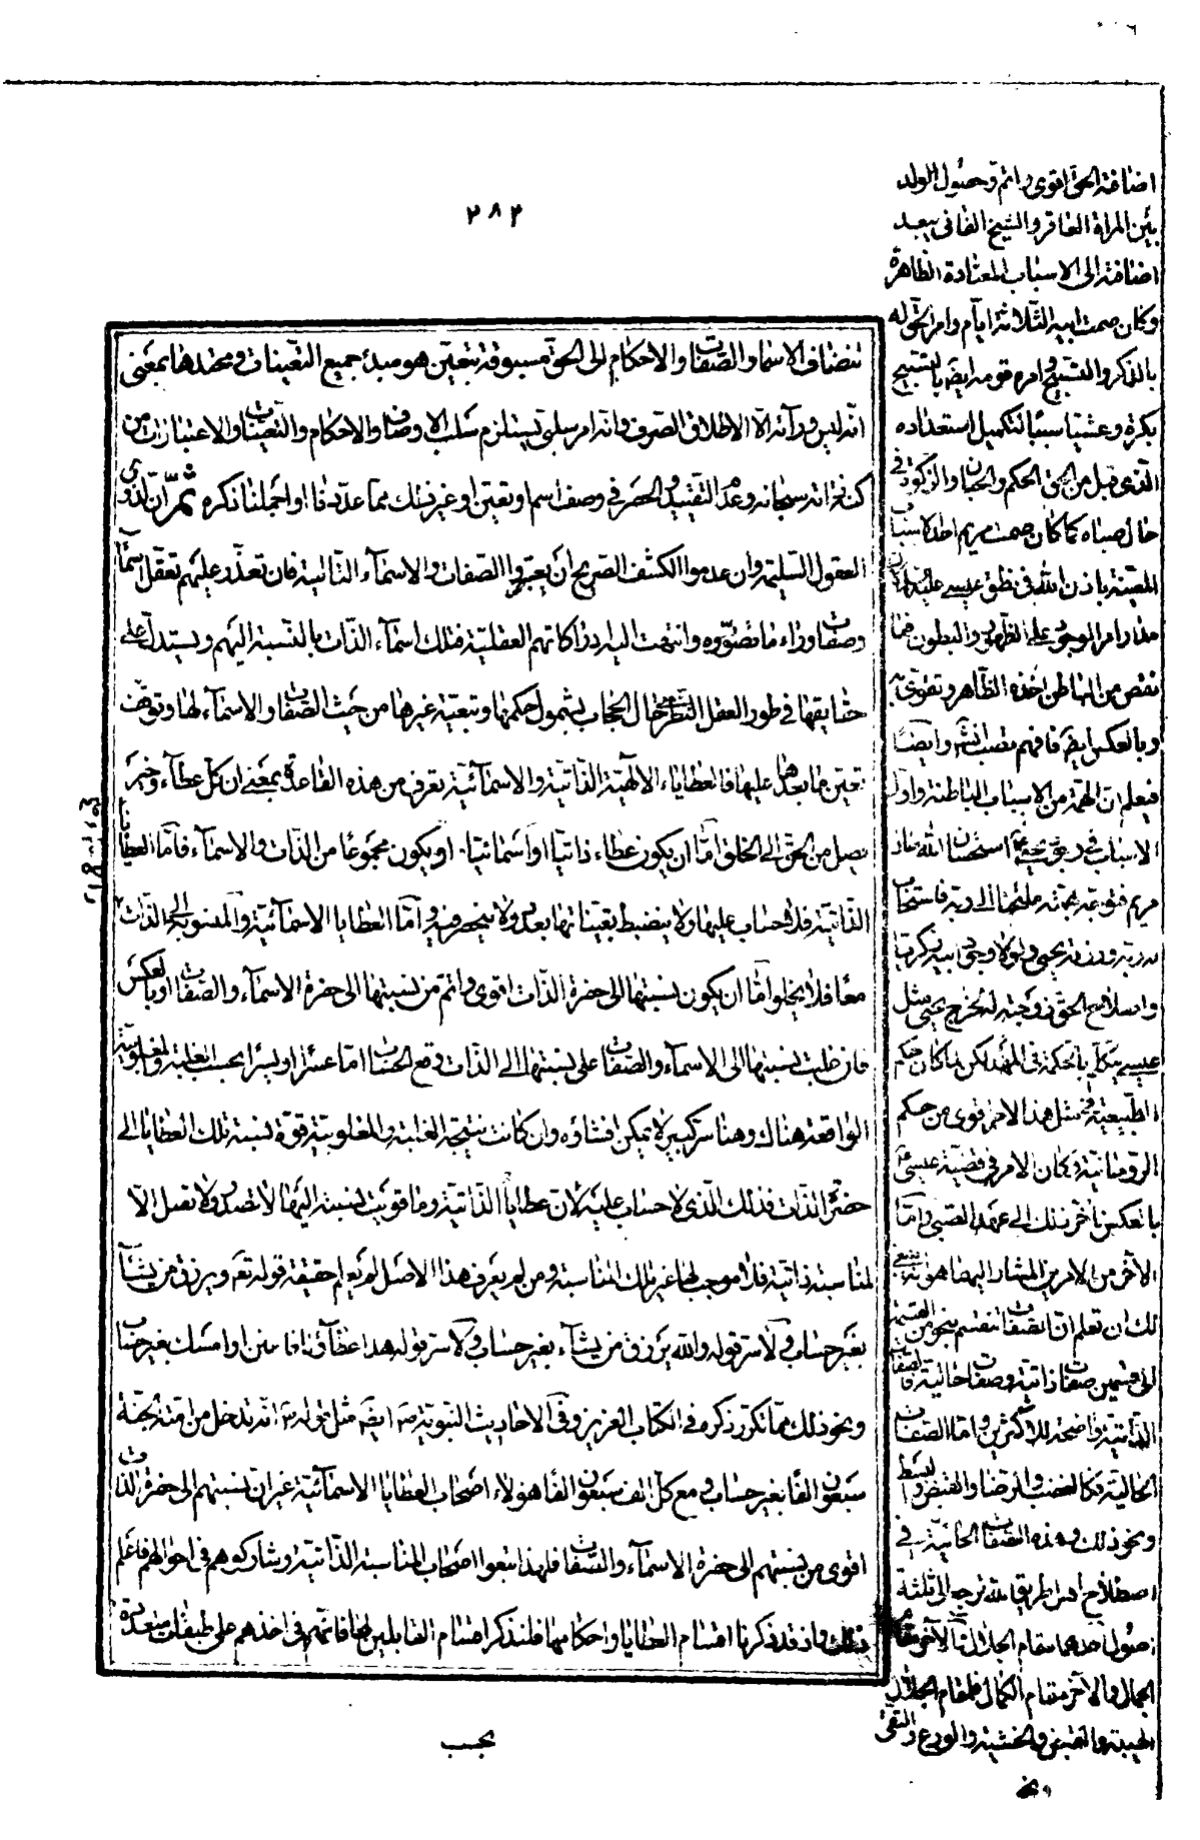 ٢٨٢
تنضاف الاسماء والصفات والاحكام الى الحق مسبوقة بتعين هو مبدء جميع التعينات ومحتدها بمعنى
انه ليس ورآئه الا الاطلاق الصرف وانه امر سلبى يستلزم سلب الاوصاف والاحكام والتعينات والاعتبارات من
كنه ذاته سبحانه وعدم التقييد والحصر فى وصف او اسم او تعين او غير ذلك مما عددنا او اجملنا ذكره ثم ان لذوى
العقول السليمة وان عدموا الكشف الصريح ان يعتبروا الصفات والاسماء الذاتية فان تعذر عليهم تعقل اسماء
وصفات وراء ما تصوروه وانتهت اليه ادراكاتهم العقلية فتلك اسماء الذات بالنسبة اليهم ويستدل على
حقايقها فى طور العقل النظرى خال الحجاب بشمول حكمها وتبعية غيرها من حيث الصفات والاسماء لها وتوقف
تعين ما بعدها عليها فالعطاياء الالهية الذاتية والاسمائية تعرف من هذه القاعدة بمعنى ان كل عطاء وخير
يصل من الحق الى الخلق اما ان يكون عطاء ذاتيا او اسمائيا او يكون مجموعا من الذات والاسماء فاما العطايا
الذاتية فلا حساب عليها ولا ينضبط تعيناتها بعدد ولا ينحصر فيه واما العطايا الاسمائية والمنسوبة الى الذات
معا فلا يخلوا اما ان يكون نسبتها الى حضرة الذات اقوى واتم من نسبتها الى حضرة الاسماء والصفات او بالعكس
فان غلبت نسبتها الى الاسماء والصفات على نسبتها الى الذات وقع الحساب اما عسرا او يسرا بحسب الغلبة والمغلوبية
الواقعة هناك وهنا سر كبير لا يمكن افشاؤه وان كانت نتيجة الغلبة والمغلوبية قوة نسبة تلك العطايا الى
حضرة الذات فذلك الذى لا حساب عليه لان عطايا الذاتية وما قويت نسبته اليها لا تصدر ولا تصل الا
لمناسبة ذاتية فلا موجب لها غير تلك المناسبة ومن لم يعرف هذا الاصل لم يعلم حقيقة قوله تعه ويرزق من يشاء
بغير حساب ولا سر قوله والله يرزق من يشاء بغير حساب ولا سر قوله هذا عطاؤنا فامنن او امسك بغير حساب
ونحو ذلك مما تكرر ذكره فى الكتاب العزيز وفى الاحاديث النبوية صه ايضه مثل قوله صه انه تدخل من امته الجنة
سبعون الفا بغير حساب ومع كل الف سبعون الفا هولاء اصحاب العطايا الاسمائية غير ان نسبتهم الى حضرة الذات
اقوى من نسبتهم الى حضرة الاسماء والصفات فلهذا تبعوا اصحاب المناسبة الذاتية وشاركوهم فى احوالهم فاعلم
ذلك واذ قد ذكرنا اقسام العطايا واحكامها فلنذكر اقسام القابلين لها فانهم فى اخذهم على طبقات متعددة
بحسب
اضافته الحق اقوى واتم وحصول الولد
بين المراة العاقر والشيخ الفانى يبعد
اضافته الى الاسباب المعتادة الظاهرة
وكان صمت ابيه الثلاثة ايام وامر الحق له
بالذكر والتسبيح وامره قومه ايضه بالتسبيح
بكرة وعشيا سببا لتكميل استعداده
الذى قبل من الحق الحكم والحنان والزكوة فى
حال صباه كما كان صمت مريم احد الاسباب
المعينة باذن الله فى نطق عيسى عليه السلام لان
مدار امر الوجود على الظهور والبطون فما
نقص من الباطن اخذه الظاهر وتقوى به
وبالعكس ايضه فافهم
فيعلم ان الهمة من الاسباب الباطنة واول
الاسباب فى وجود يحيى استحسان الله حال
مريم فتوجه بهمته الى ربه فاستجاب
له ربه ورزقه يحيى
واصلاح الحق زوجته لم يخرج يحيى مثل
عيسى يتكلم بالحكمة فى المهد لكن لما كان حكم
الطبيعة فى مثل هذا الامر اقوى من حكم
الروحانية وكان الامر فى قضية عيسى
بالعكس تاخر ذلك الى عهد الصبى واما
الآخر من الامرين المشار اليهما هو انه ينبغى
لك ان تعلم ان الصفات تنقسم بنحو من القسمة
الى قسمين صفات ذاتية وصفات حالية فالصفات
الذاتية واضحة للاكثرين واما الصفات
الحالية فكالغضب والرضا والقبض والبسط
ونحو ذلك وهذه الصفات الحالية فى
اصطلاح اهل طريق الله ترجع الى ثلثة
اصول احدها مقام الجلال والآخر مقام
الجمال والآخر مقام الكمال فلمقام الجلال
الهيبة والقبض والخشية والورع والتقى